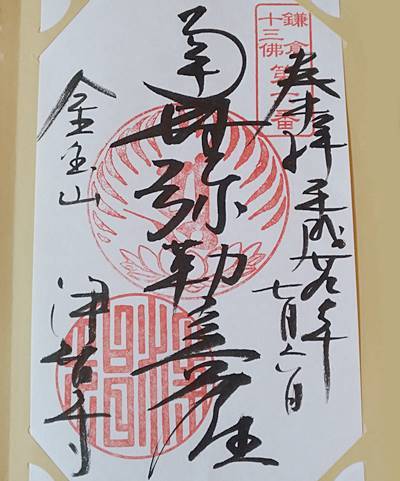 鎌倉
十三佛
第六番
奉拝 平成廿年
七月六日
南無弥勒菩薩
金宝山 浄智寺